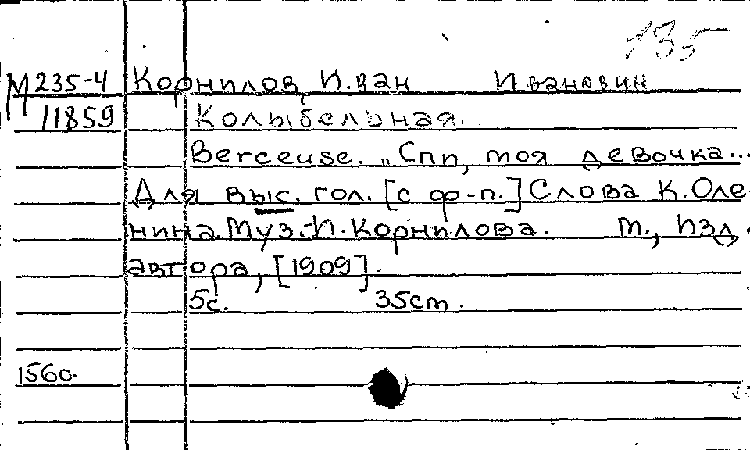 135
М 235-4 Корнилов, Иван Иванович
11859 Колыбельная.
Berceuse. „Спи, моя девочка...
Для выс. гол. [с ф-п.] Слова К. Оле-
нина. Муз. И. Корнилова. М., Изд.
автора, [1909].
5с. 35см.
1560.